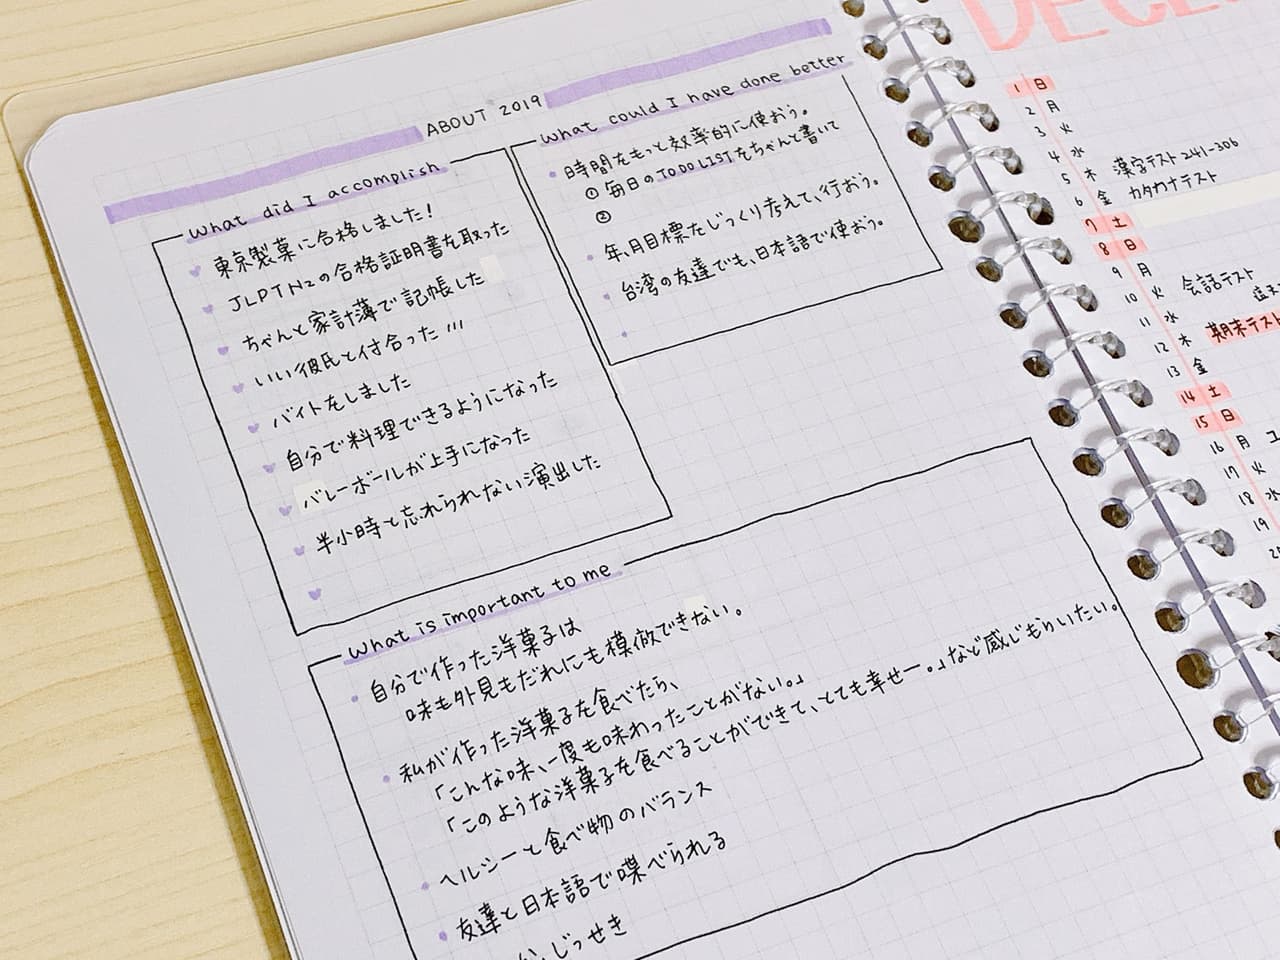 ABOUT 2019
What did I accomplish
東京製菓に合格しました!
JLPTN2の合格証明書を取った
ちゃんと家計薄で記帳した
いい彼氏と付合った
バイトをしました
自分で料理できるようになった
バレーボールが上手になった
半小時と忘れられない演出した
What could I have done better
時間をもっと効率的に使おう。
① 毎日のTO DO LISTをちゃんと書いて
②
年、月目標をじっくり考えて、行おう。
台湾の友達でも、日本語で使おう。
What is important to me
自分で作った洋菓子は
味も外見もだれにも模倣できない。
私が作った洋菓子を食べたら、
「こんな味、一度も味わったことがない。」
「このような洋菓子を食べることができて、とても幸せー。」など感じもらいたい。
ヘルシーと食べ物のバランス
友達と日本語で喋べられる
じっせき
DECE
1 日
2 月
3 火
4 水
5 木 漢字テスト 241-306
6 金 カタカナテスト
7 土
8 日
9 月
10 火 会話テスト
11 水
12 木 期末テスト
13 金
14 土
15 日
16 月
17 火
18 水
19